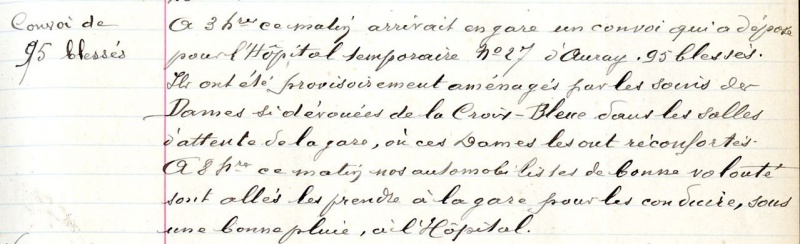 Convoi de
95 blessés
A 3 hres ce matin arrivait en gare un convoi qui a déposé
pour l'Hôpital temporaire No 27 d'Auray. 95 blessés.
Ils ont été provisoirement aménagés par les soins des
Dames si dévouées de la Croix-Bleue dans les salles
d'attente de la gare, où ces Dames les ont réconfortés.
A 8 hres ce matin nos automobilistes de bonne volonté
sont allés les prendre à la gare pour les conduire, sous
une bonne pluie, à l'Hôpital.